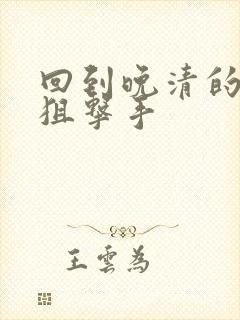 回到晚清的
狙擊手
王雲為